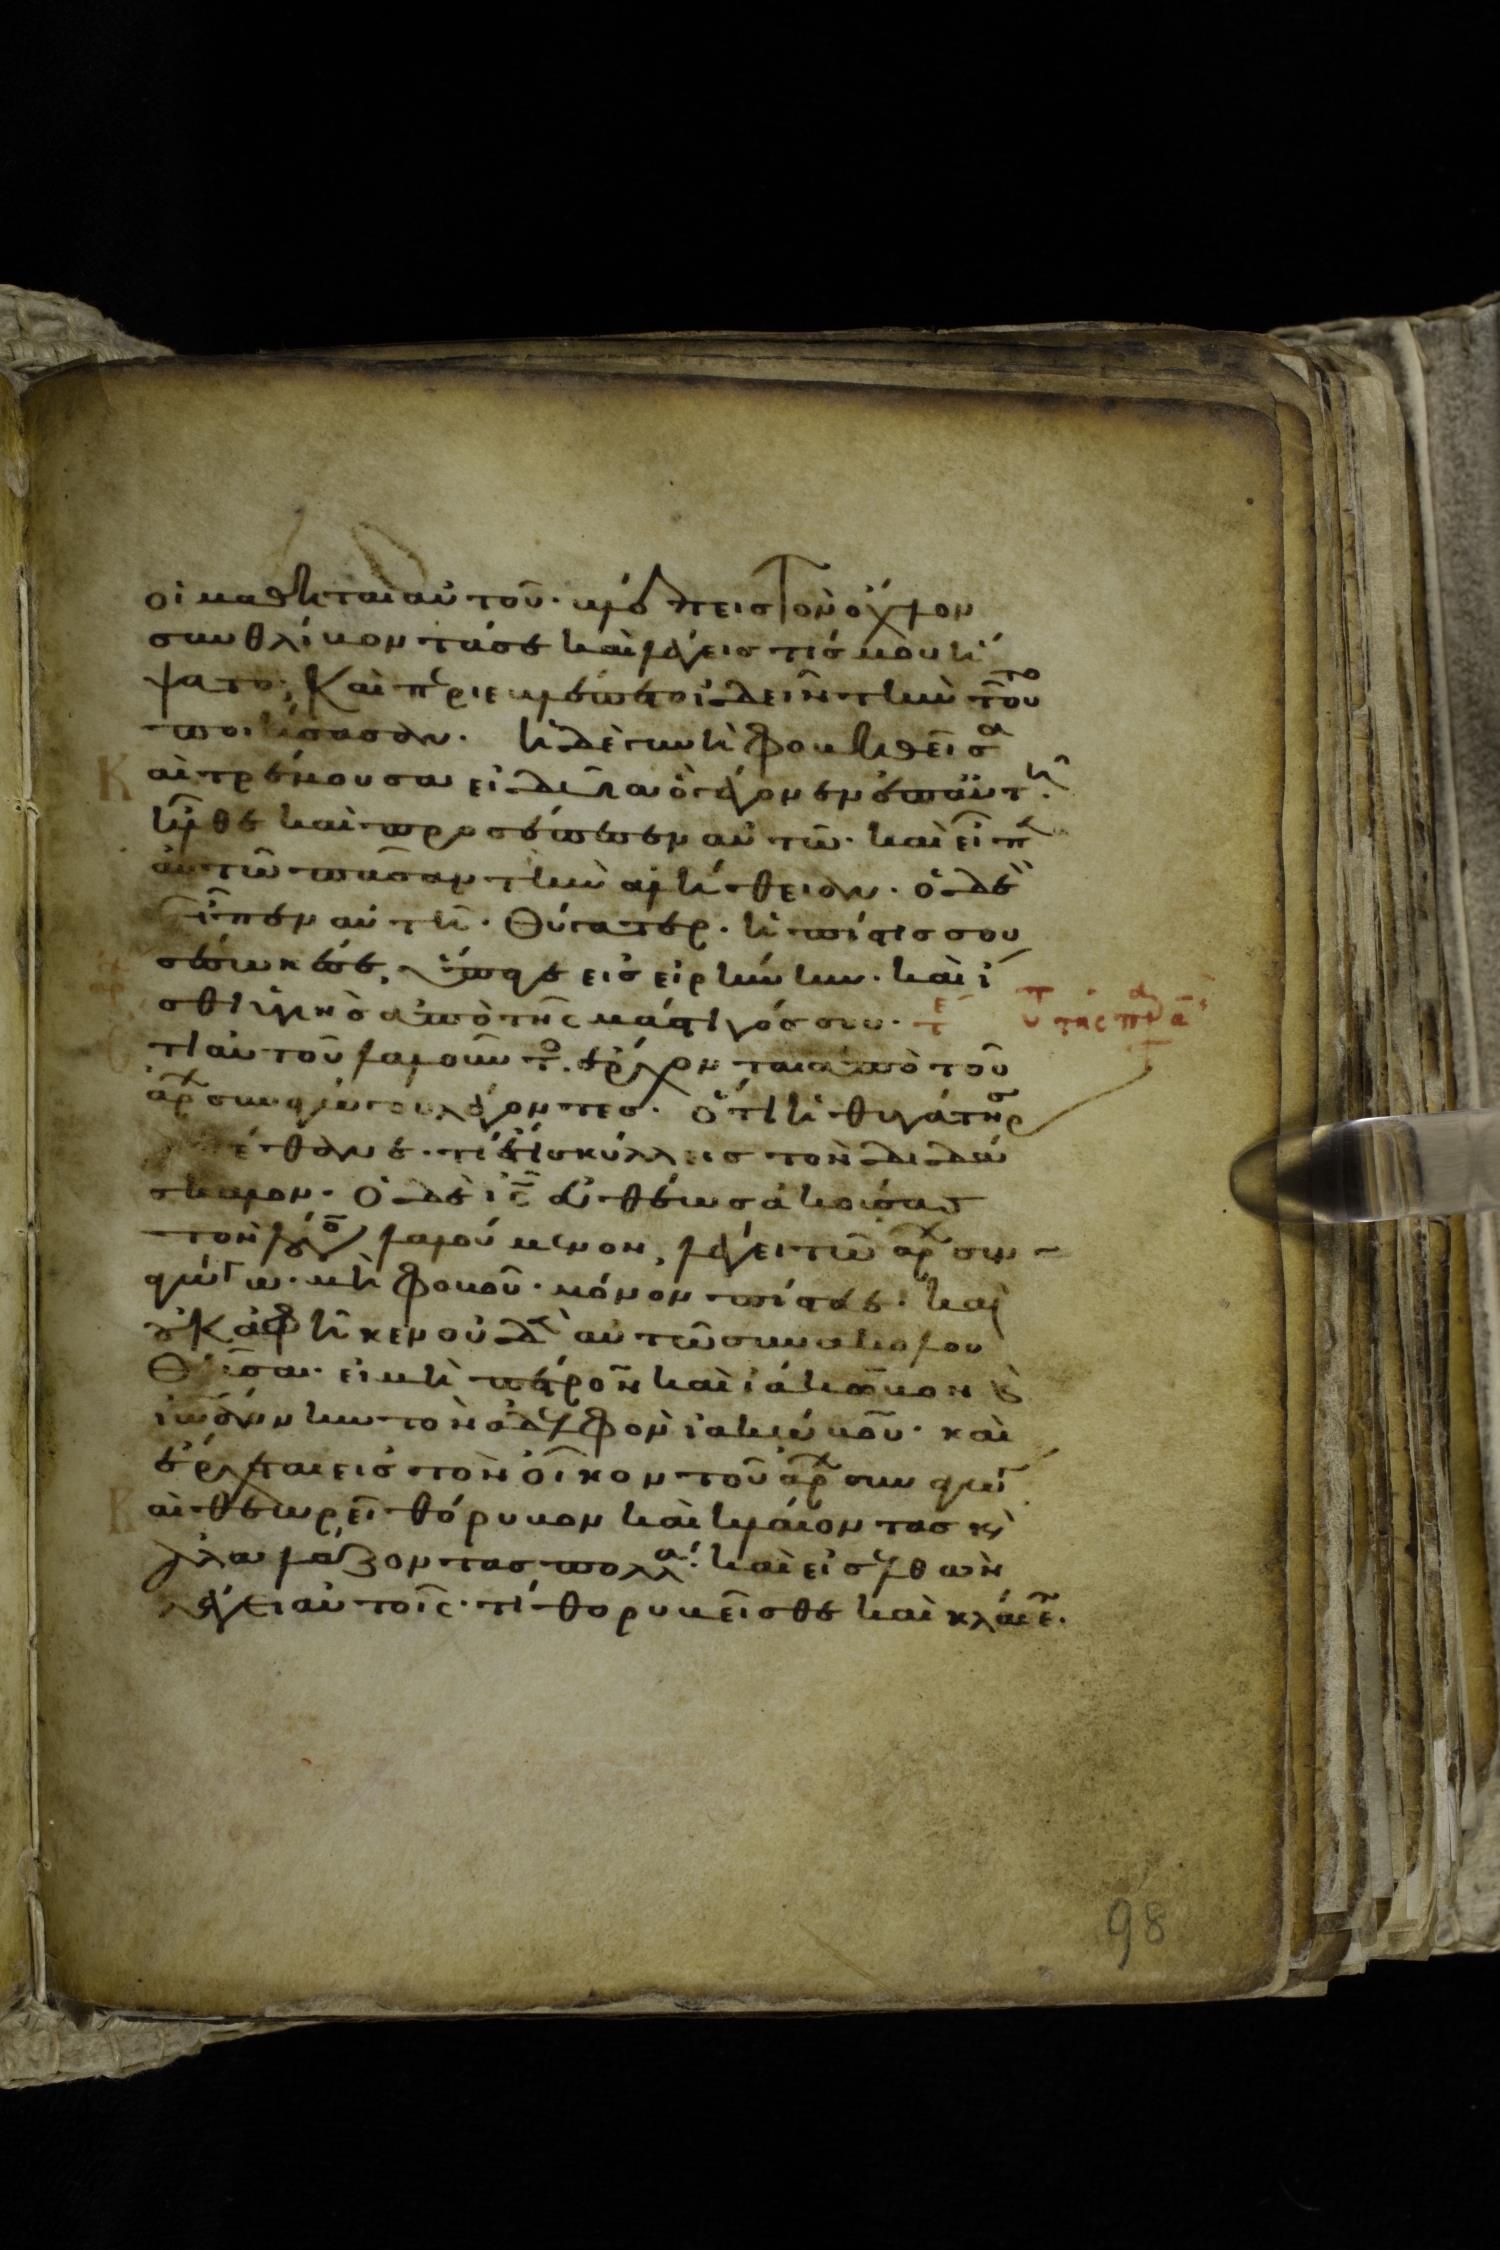 οἱ μαθηται αὐτοῦ· βλέπεις τὸν ὄχλον
συνθλίβοντά σε καὶ λέγεις τίς μου ἥ
ψατο; Καὶ περιεβλέπετο ἰδεῖν τὴν τοῦτο
ποιήσασαν. ἡ δὲ γυνὴ φοβηθεῖσα
Καὶ τρέμουσα εἰδυῖα ὃ γέγονεν ἐπ αὐτῆ.
ἦλθε καὶ προσέπεσεν αὐτῶ· καὶ εἶπε
αὐτῶ πᾶσαν τὴν ἀλήθειαν. ὁ δὲ
εἶπεν αὐτῆ. Θύγατερ. ἡ πίστις σου
σέσωκέ σε, ὕπαγε εἰς εἰρήνην. καὶ ἴ
σθι ὑγιὴς ἀπὸ τῆς μάστιγός σου.
τι αὐτοῦ λαλοῦντο. ἔρχονται ἀπὸ τοῦ
ἀρχισυναγώγου λέγοντες. ὅτι ἡ θυγάτηρ σ
ἀπέθανε. τί ἔτι σκύλλεις τὸν διδά
σκαλον. Ὁ δὲ ις εὐθέως ἀκούσας
τὸν λόγον λαλούμενον, λέγει τῶ ἀρχισυν
αγώγω. μὴ φοβοῦ. μόνον πίστευε. καὶ
οὐκ ἀφῆκεν οὐδένα αὐτῶ συνακολου
θῆσαι. εἰ μὴ πέτρον καὶ ἰάκωβον καὶ
ἰωάννην τὸν ἀδελφὸν ἰακώβου. καὶ
ἔρχεται εἰς τὸν οἶκον τοῦ ἀρχισυναγώγου
Καὶ θεωρεῖ θόρυβον καὶ κλαίοντας κὶ
ἀλαλάζοντας πολλά. καὶ εἰσελθὼν
λέγει αὐτοῖς. τί θορυβεῖσθε καὶ κλαίετε.
98